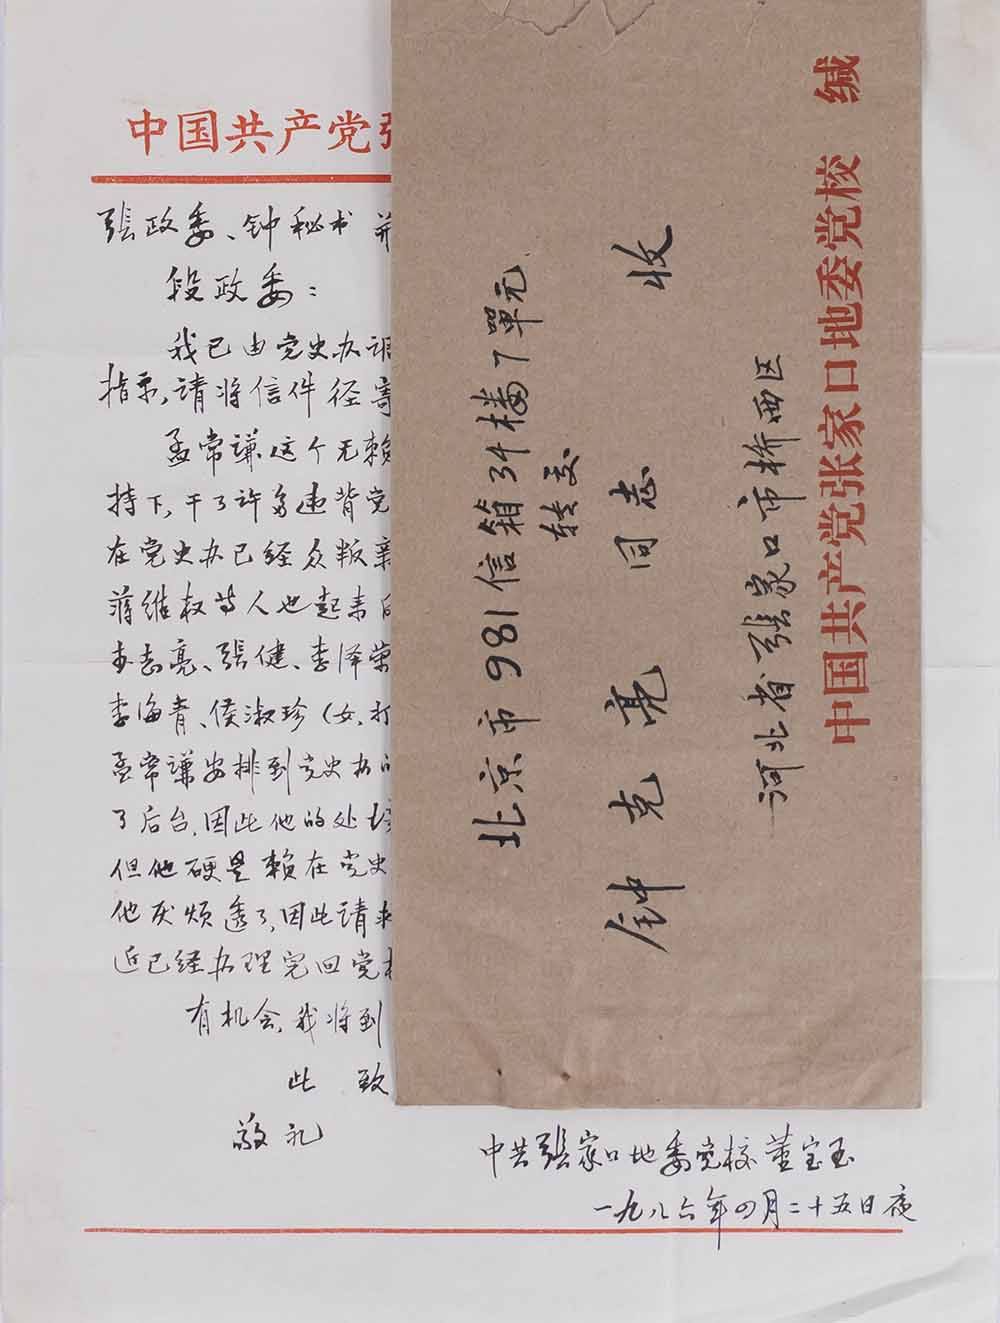 中国共产党张
張政委、钟秘书并
段政委：
我已由党史办调
指示，请将信件径寄
孟常谦这个无赖
持下，干了许多违背党
在党史办已经众叛亲
蒋维权等人也起来
志亮、張健、李泽荣
李海青、侯淑珍（女、打
孟常谦安排到党史办的
了后台，因此他的处境
但他硬是赖在党史
他厌烦透了，因此请求
近已经办理完回党校
有机会，我将到
此致
敬礼
中共張家口地委党校董宝玉
一九八六年四月二十五日夜
北京市981信箱34楼7單元
转交
钟克亮同志 收
河北省張家口市桥西区
中国共产党张家口地委党校 缄